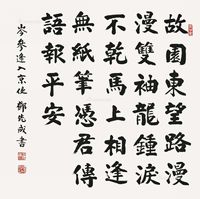 故園東望路漫
漫雙袖龍鍾淚
不乾馬上相逢
無紙筆憑君傳
語報平安
岑參逢入京使 鄭先成書